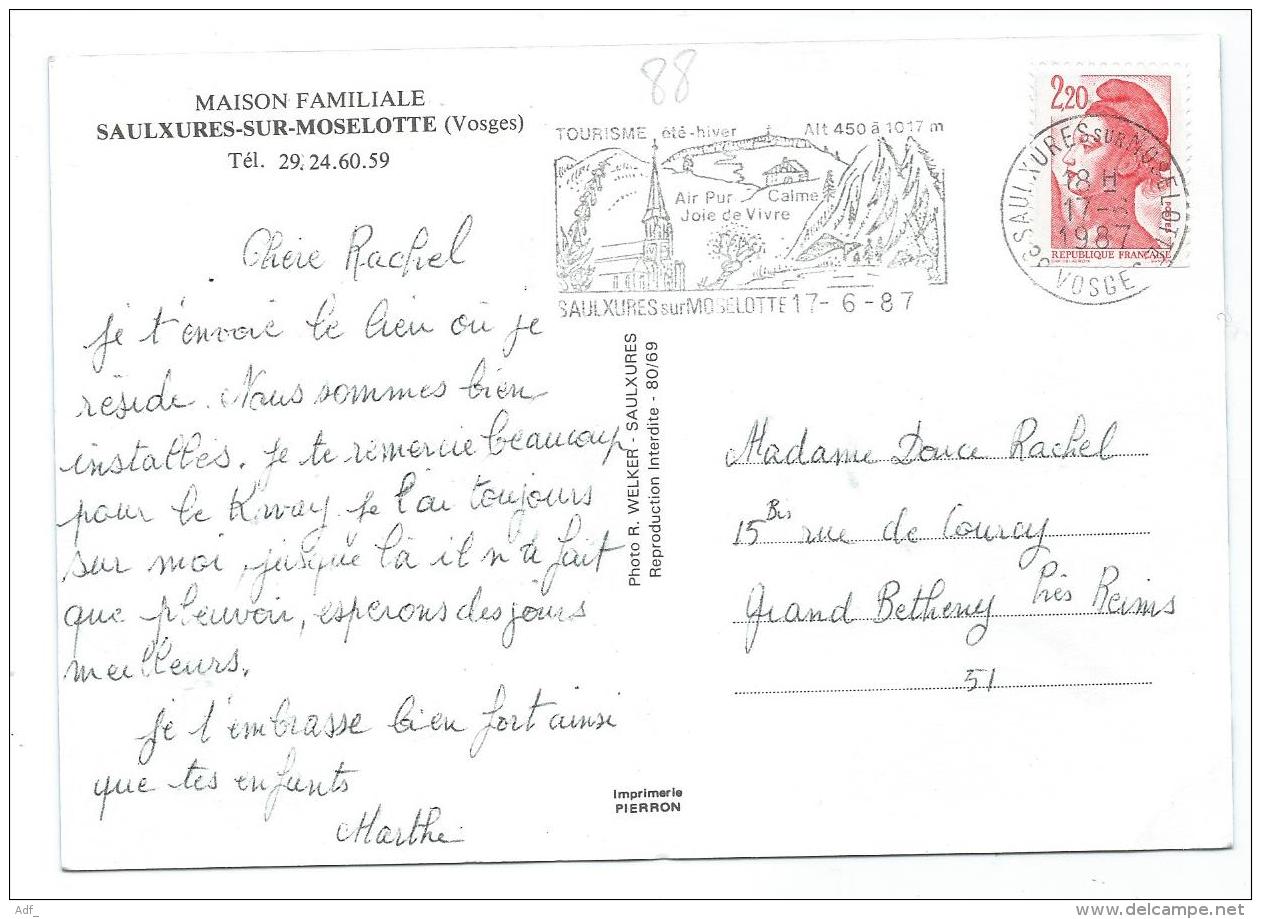 88
MAISON FAMILIALE
SAULXURES-SUR-MOSELOTTE (Vosges)
Tél. 29.24.60.59
Chère Rachel
je t'envoie le lieu où je
réside. Nous sommes bien
installés. je te remercie beaucoup
pour le Kway je l'ai toujours
sur moi, jusque là il n'a fait
que pleuvoir, esperons des jours
meilleurs.
je t'embrasse bien fort ainsi
que tes enfants
Marthe
TOURISME été-hiver Alt 450 à 1017 m
Air Pur Calme
Joie de Vivre
SAULXURES sur MOSELOTTE 17-6-87
2,20
POSTES
REPUBLIQUE FRANÇAISE
SAULXURES SUR MOSELOTTE
18 H
17-6
1987
VOSGES
Photo R. WELKER - SAULXURES
Reproduction Interdite - 80/69
Madame Douce Rachel
15 Bis rue de Courcy
Grand Betheny Près Reims
51
Imprimerie
PIERRON
Adf_
www.delcampe.net